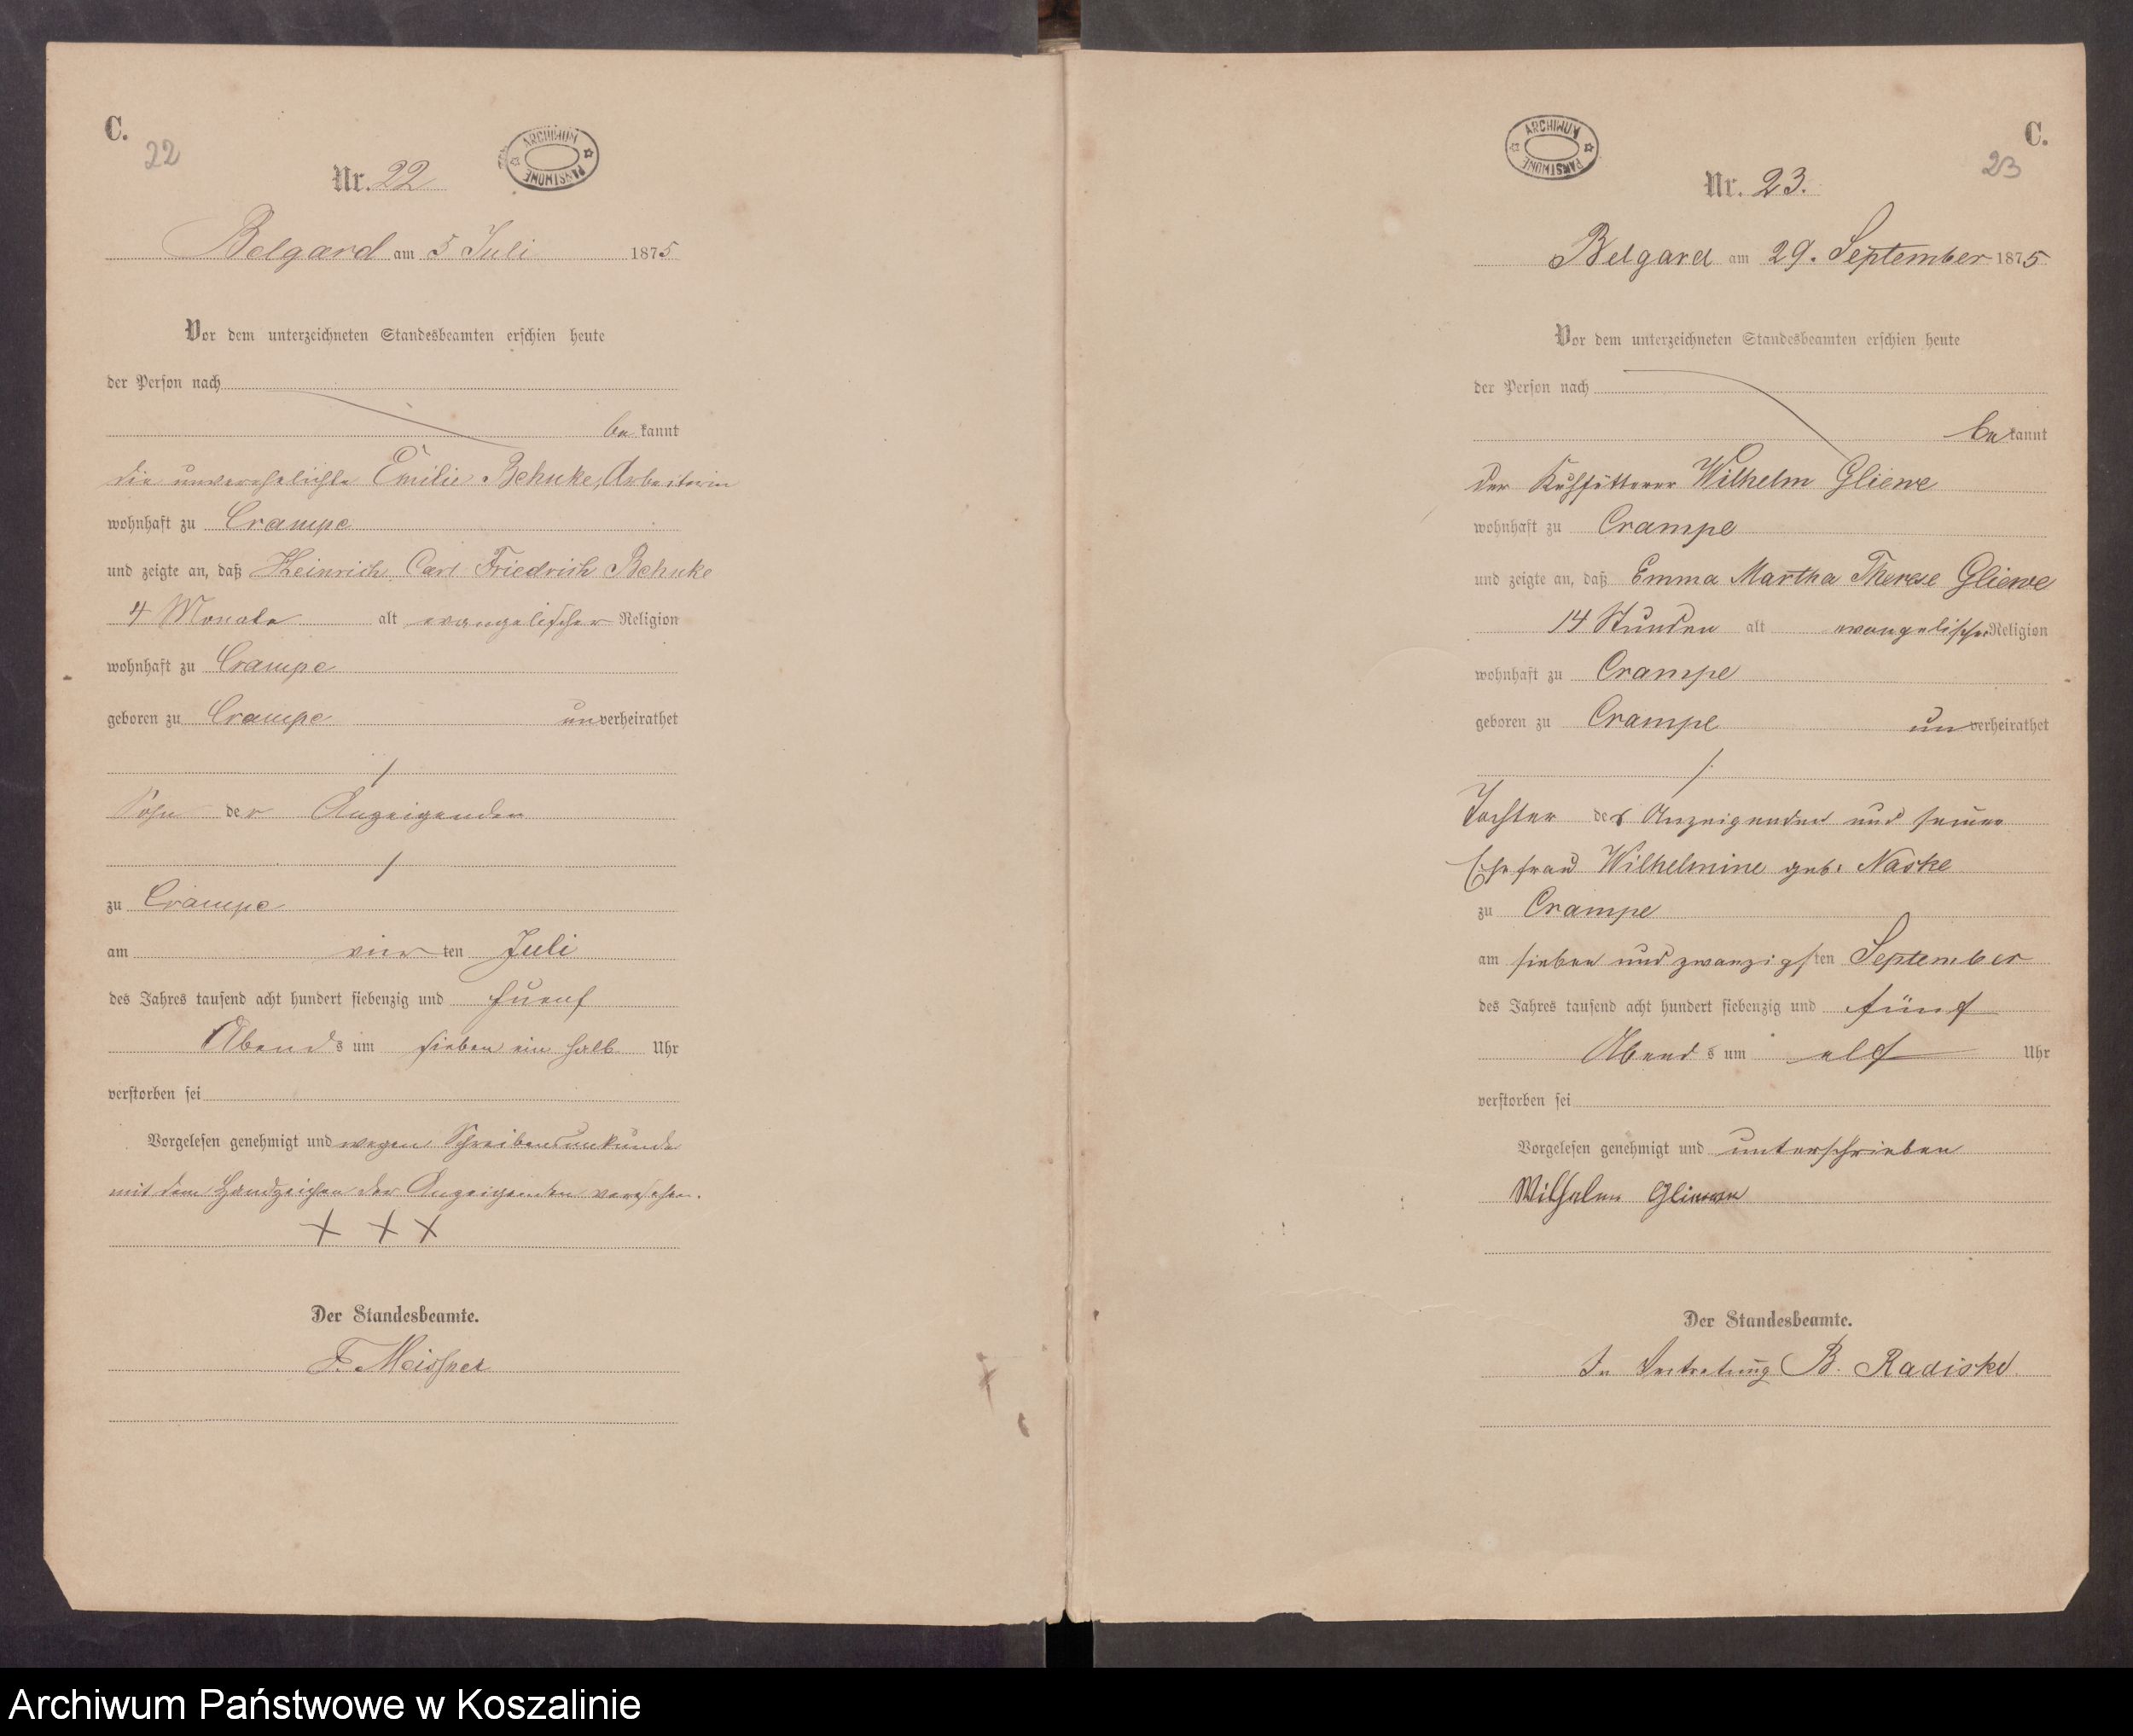 C.
22
Nr. 22
ARCHIWUM PAŃSTWOWE
Belgard am 5 Juli 1875
Vor dem unterzeichneten Standesbeamten erschien heute
der Person nach
be kannt
die unverehelichte Emilie Behnke, Arbeiterin
wohnhaft zu Crampe
und zeigte an, daß Heinrich Carl Friedrich Behnke
4 Monate alt evangelischer Religion
wohnhaft zu Crampe
geboren zu Crampe unverheirathet
/
Sohn der Anzeigenden
/
zu Crampe
am vier ten Juli
des Jahres tausend acht hundert siebenzig und fuenf
Abends um sieben ein halb Uhr
verstorben sei
Vorgelesen genehmigt und wegen Schreibensunkunde
mit dem Handzeichen der Anzeigenden versehen.
+ + +
Der Standesbeamte.
F. Meissner
C.
23
Nr. 23.
ARCHIWUM PAŃSTWOWE
Belgard am 29. September 1875
Vor dem unterzeichneten Standesbeamten erschien heute
der Person nach
be kannt
der Kuhfütterer Wilhelm Gliewe
wohnhaft zu Crampe
und zeigte an, daß Emma Martha Therese Gliewe
14 Stunden alt evangelischer Religion
wohnhaft zu Crampe
geboren zu Crampe unverheirathet
/.
Tochter des Anzeigenden und seiner
Ehefrau Wilhelmine geb. Naske
zu Crampe
am sieben und zwanzigsten September
des Jahres tausend acht hundert siebenzig und fünf
Abends um elf Uhr
verstorben sei
Vorgelesen genehmigt und unterschrieben
Wilhelm Gliewe
Der Standesbeamte.
In Vertretung B. Radiske
Archiwum Państwowe w Koszalinie